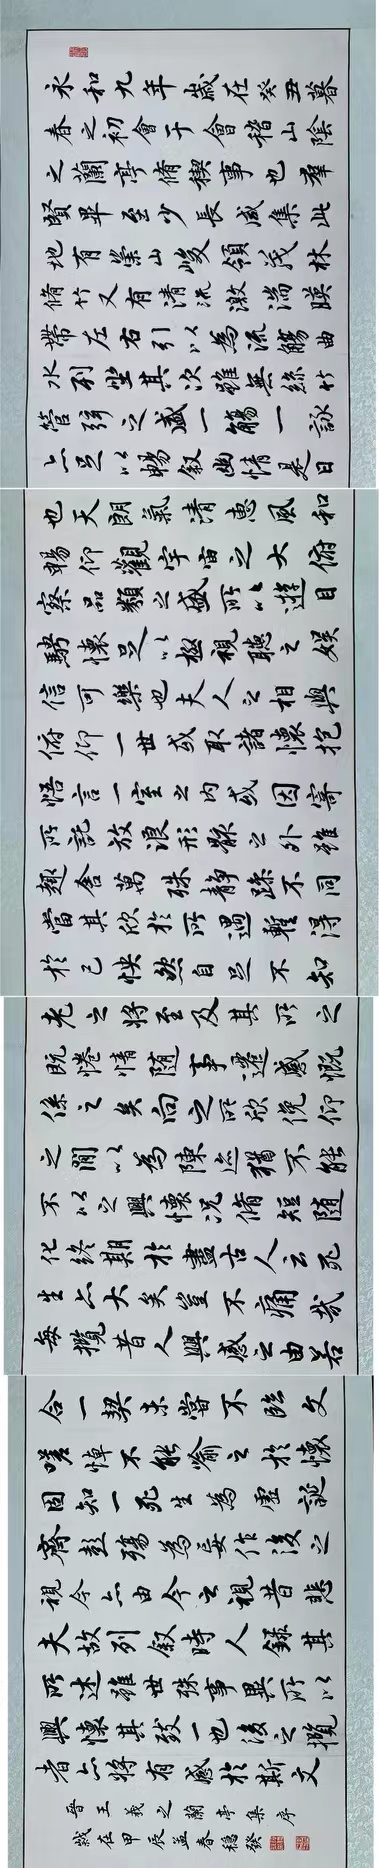 永和九年歲在癸丑暮
春之初會于會稽山陰
之蘭亭脩禊事也羣
賢畢至少長咸集此
地有崇山峻領茂林
脩竹又有清流激湍暎
帶左右引以為流觴曲
水列坐其次雖無絲竹
管弦之盛一觴一詠
亦足以暢敘幽情是日
也天朗氣清惠風和
暢仰觀宇宙之大俯
察品類之盛所以遊目
騁懷足以極視聽之娛
信可樂也夫人之相與
俯仰一世或取諸懷抱
悟言一室之內或因寄
所託放浪形骸之外雖
趣舍萬殊靜躁不同
當其欣於所遇暫得
於己怏然自足不知
老之將至及其所之
既惓情隨事遷感慨
係之矣向之所欣俛仰
之閒以為陳迹猶不能
不以之興懷況脩短隨
化終期於盡古人云死
生亦大矣豈不痛哉
每攬昔人興感之由若
合一契未嘗不臨文
嗟悼不能喻之於懷
固知一死生為虛誕
齊彭殤為妄作後之
視今亦由今之視昔悲
夫故列敘時人錄其
所述雖世殊事異所以
興懷其致一也後之攬
者亦將有感於斯文
晉王羲之蘭亭集序
歲在甲辰孟春穩發